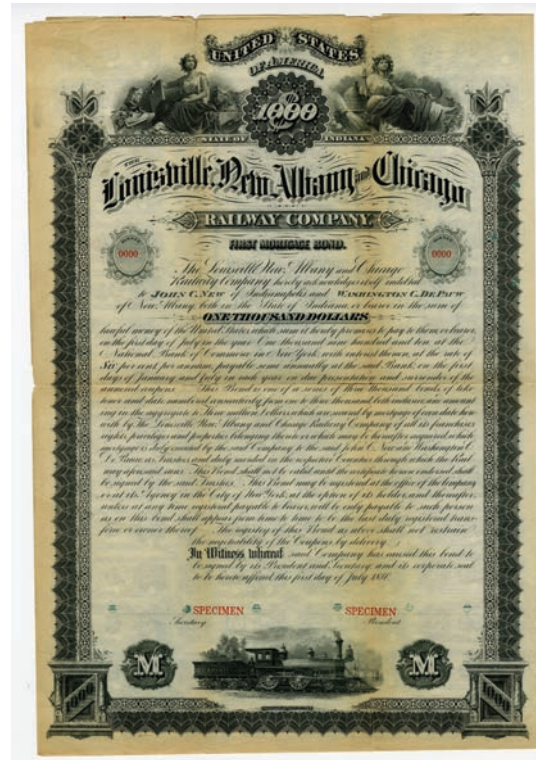 UNITED STATES
OF AMERICA
1000
STATE OF INDIANA
THE
Louisville, New Albany and Chicago
RAILWAY COMPANY
FIRST MORTGAGE BOND.
0000 0000
The Louisville New Albany and Chicago
Railway Company hereby acknowledges itself indebted
to JOHN C. NEW of Indianapolis and WASHINGTON C. DE PAUW
of New Albany both in the State of Indiana or bearer in the sum of
ONE THOUSAND DOLLARS
lawful money of the United States which sum it hereby promises to pay to them, or bearer
on the first day of July in the year One thousand nine hundred and ten, at the
National Bank of Commerce in New York, with interest thereon, at the rate of
Six per cent per annum, payable semi annually at the said Bank, on the first
days of January and July in each year on due presentation and surrender of the
annexed coupons. This Bond is one of a series of Three thousand bonds, of like
tenor and date numbered consecutively from one to three thousand both inclusive, amount
ing in the aggregate to Three million Dollars which are secured by mortgage of even date here
with by The Louisville New Albany and Chicago Railway Company of all its franchises
rights privileges and properties belonging thereto or which may be hereafter acquired, which
mortgage is duly executed by the said Company to the said John C. New and Washington C.
De Pauw, as Trustees, and duly recorded in the respective Counties through which the Road
may aforesaid runs. This Bond shall not be valid until the certificate hereon endorsed shall
be signed by the said Trustees. This Bond may be registered at the office of the Company
or at its Agency in the City of New York, at the option of its holder, and thereafter,
unless at any time registered payable to bearer, will be only payable to such person
as on this bond shall appear from time to time to be the last duly registered trans-
feree or owner thereof. The registry of this Bond as above shall not restrain
the negotiability of the Coupons by delivery.
In Witness whereof said Company has caused this bond to
be signed by its President and Secretary and its corporate seal
to be hereto affixed this first day of July
SPECIMEN SPECIMEN
Secretary President
M M
1000 1000